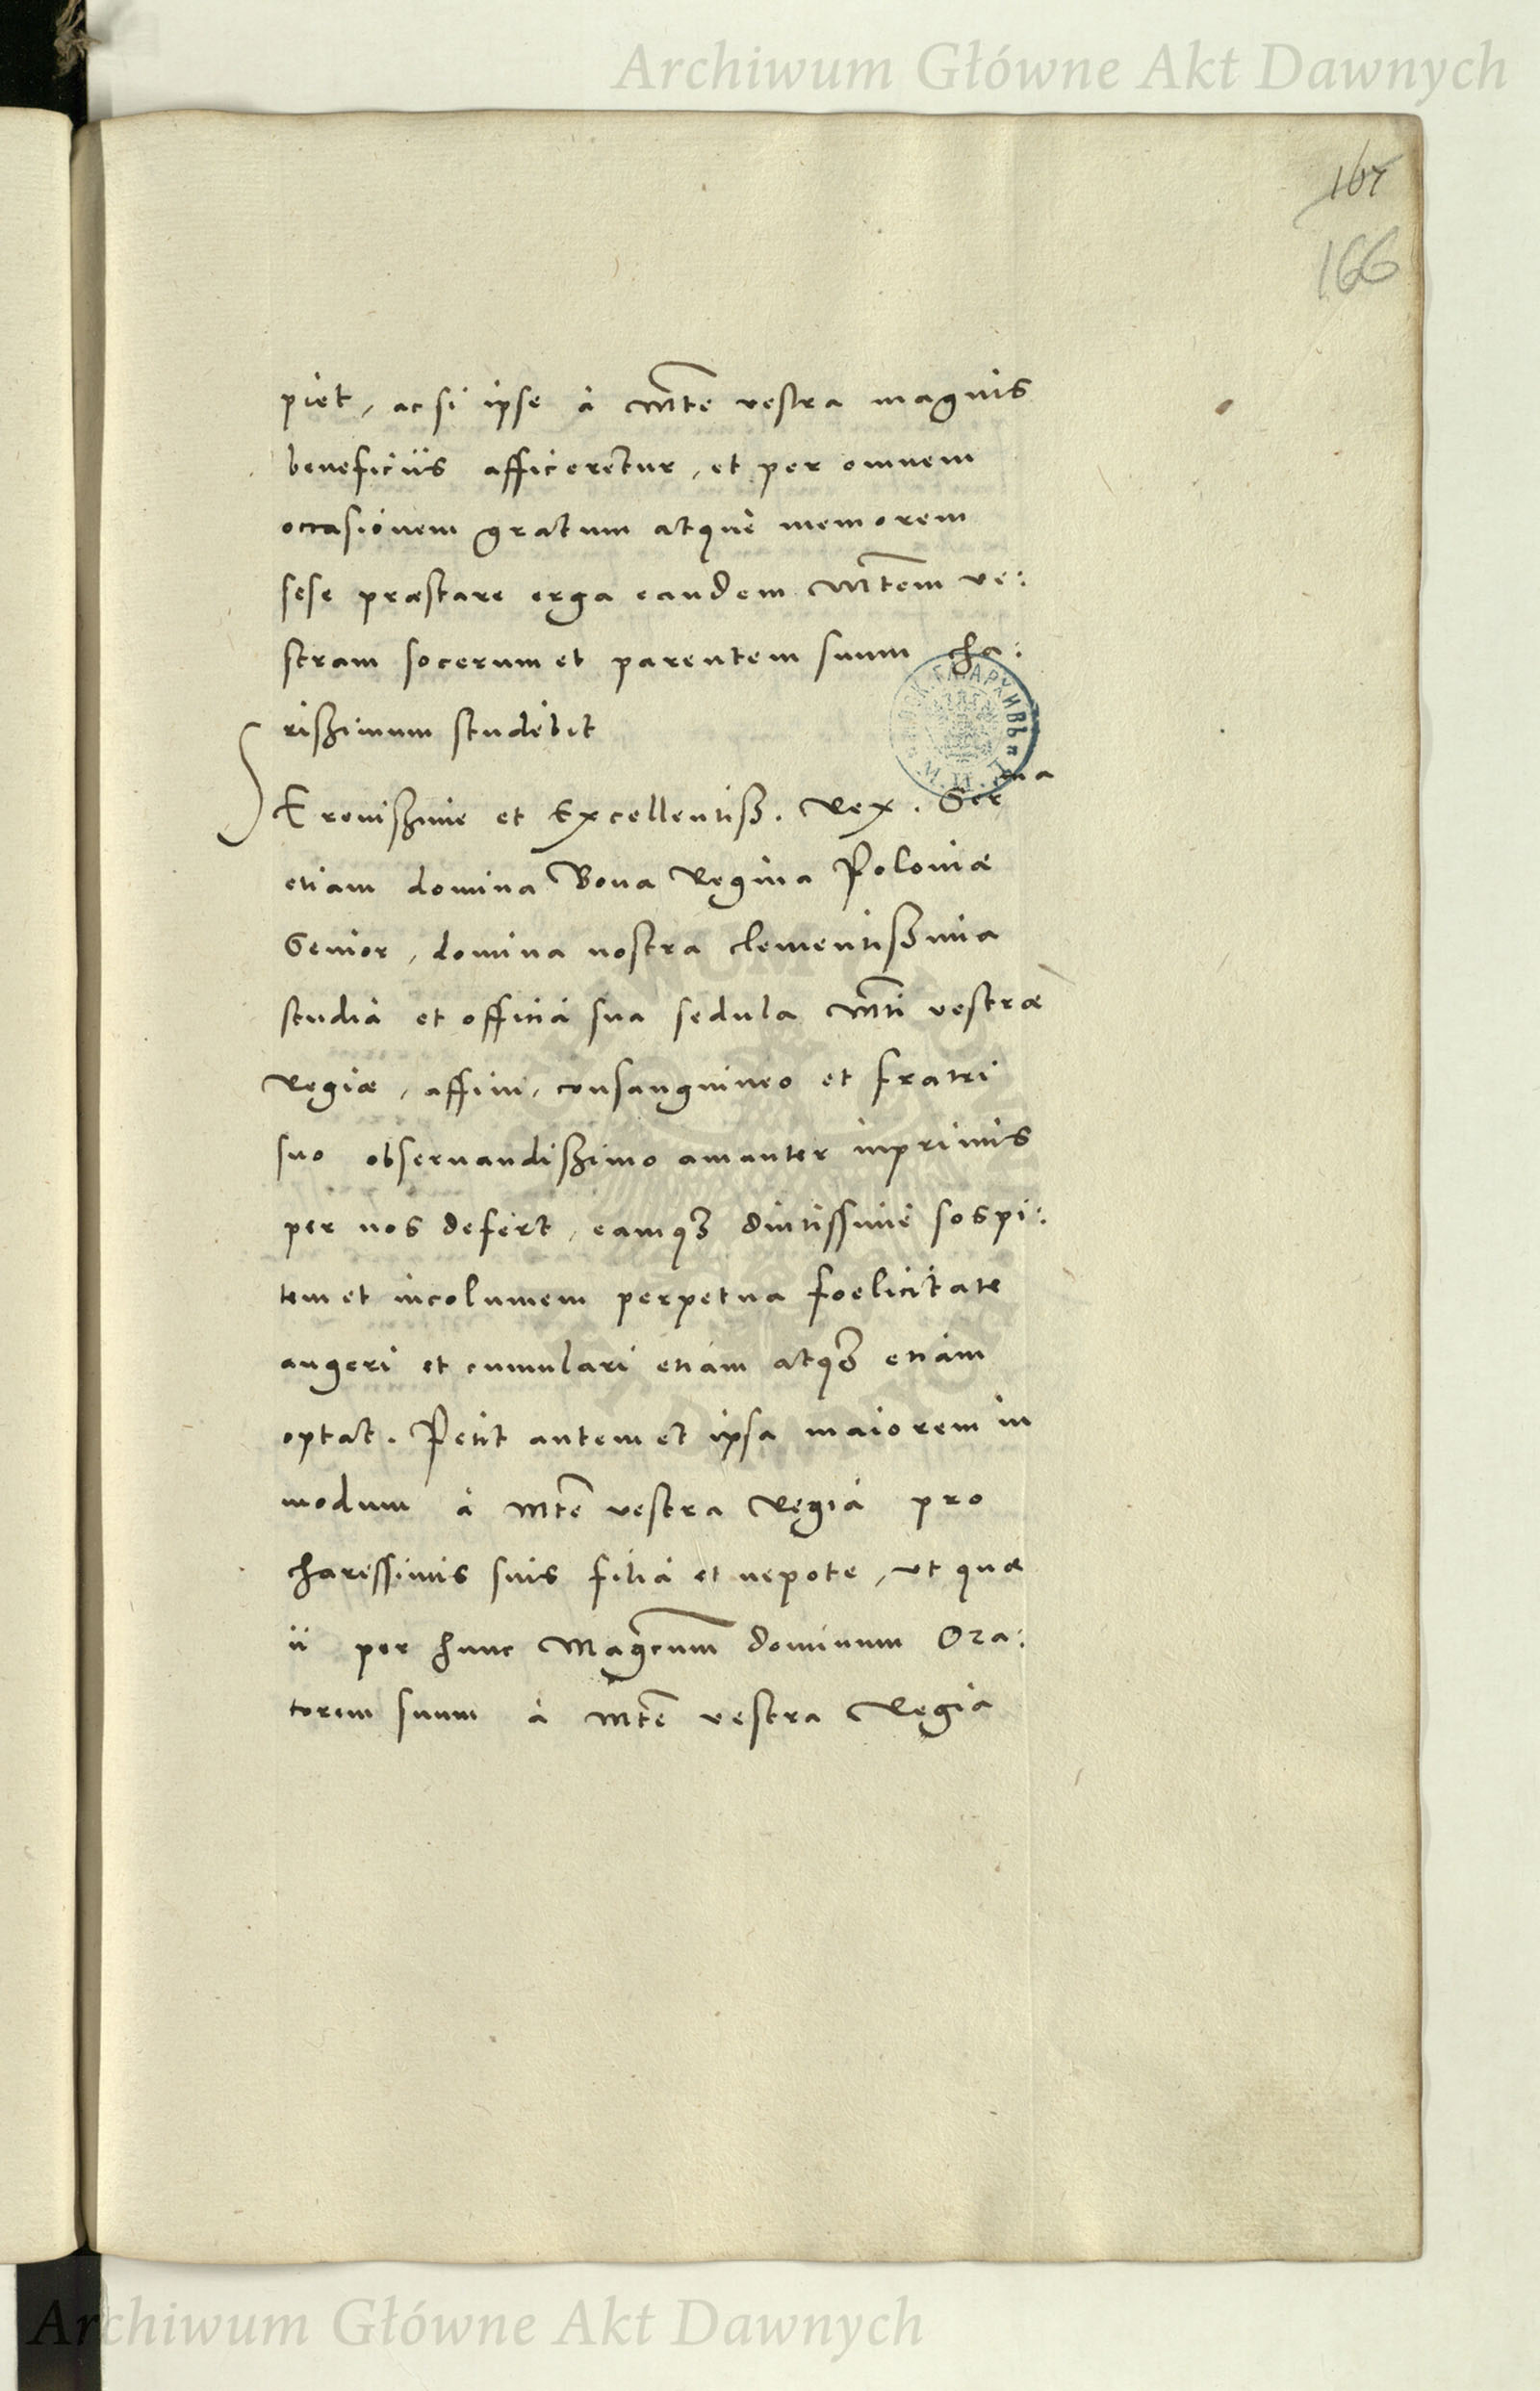 Archiwum Główne Akt Dawnych
167
166
piet, ac si ipse à Mte vestra magnis
beneficiis afficeretur, et per omnem
occasionem gratum atque memorem
sese præstare erga eandem Mtem ve:
stram socerum et parentem suum cha:
rissimum studebit
Serenissime et Excellentiss. Rex. Serma
etiam domina Bona Regina Poloniæ
Senior, domina nostra clementissima
studia et officia sua sedula Mti vestræ
Regiæ, affini, consanguineo et fratri
suo observandissimo amanter inprimis
per nos defert, eamq3 diutissime sospi:
tem et incolumem perpetua foelicitate
augeri et cumulari etiam atq3 etiam
optat. Petit autem et ipsa maiorem in
modum à Mte vestra Regia pro
charissimis suis filia et nepote, ut quæ
ii per hunc Magcum dominum Ora:
torem suum à Mte vestra Regia
Archiwum Główne Akt Dawnych